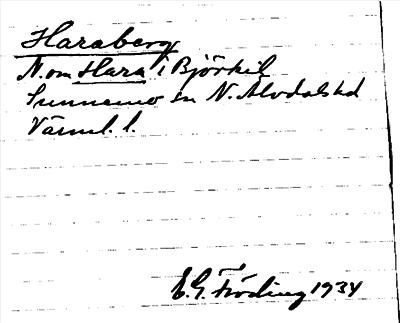 Haraberg
N. om Hara i Björkil
Sunnemo sn N. Älvdalshd
Värml. l.
E. G. Fröding 1934